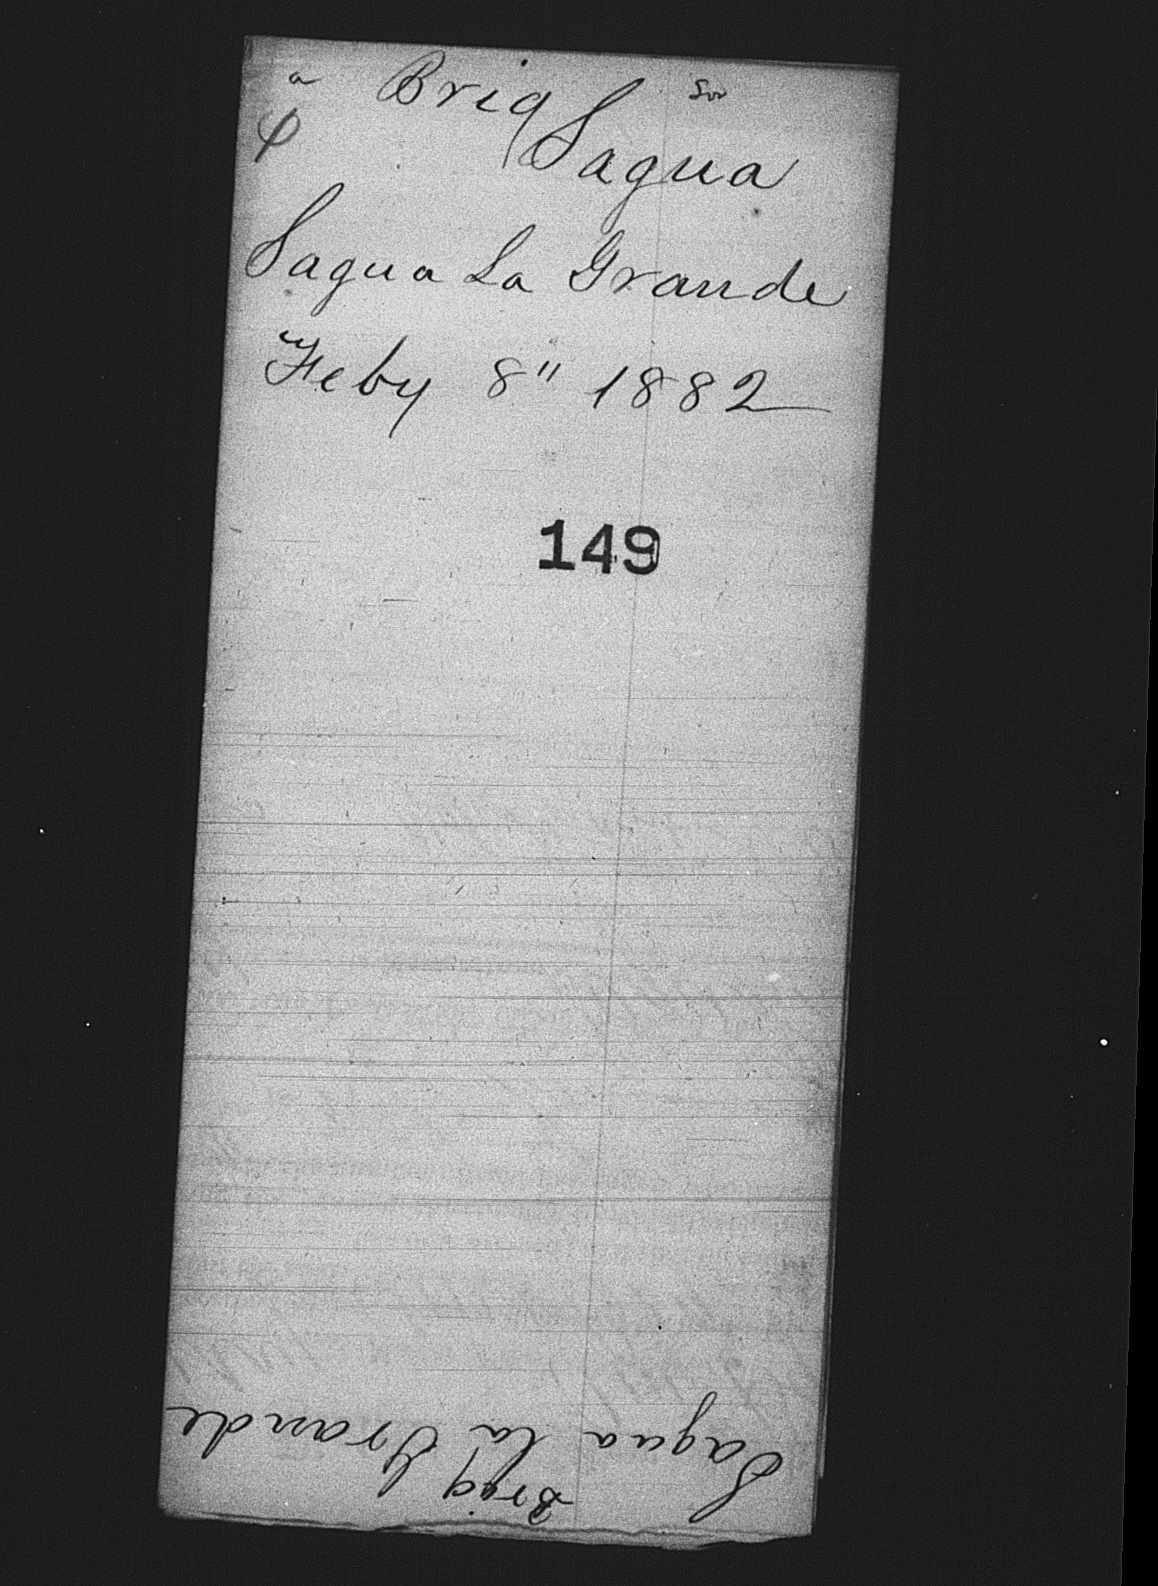 a Brig
Sagua
Sagua La Grande
Feby 8" 1882
149
Brig
Sagua la Grande